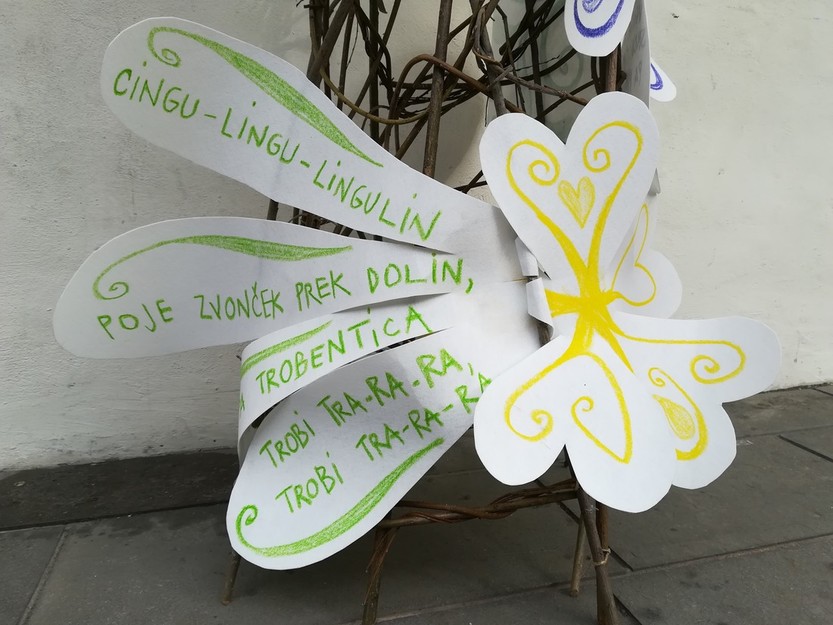 CINGU-LINGU-LINGULIN
POJE ZVONČEK PREK DOLIN,
A TROBENTICA
TROBI TRA-RA-RA,
TROBI TRA-RA-RA